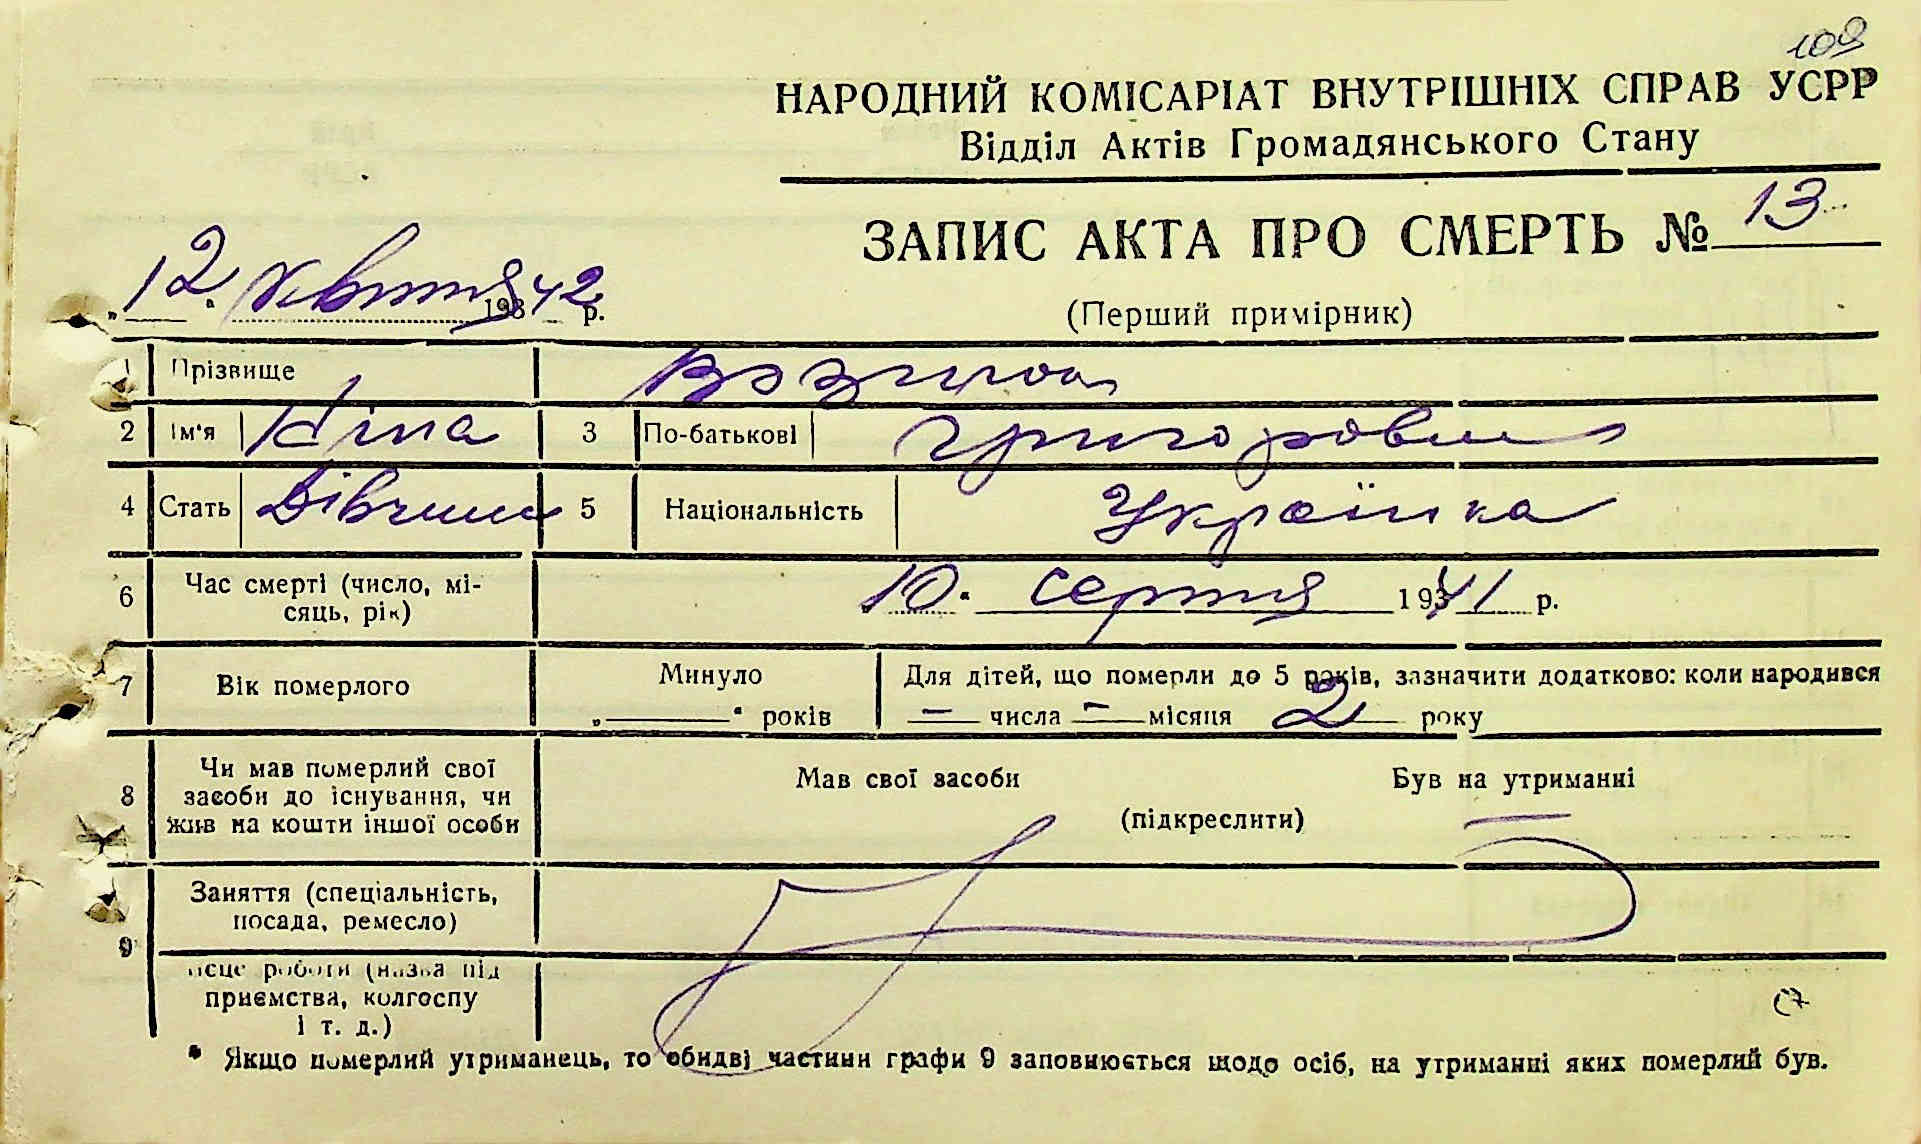 109
НАРОДНИЙ КОМІСАРІАТ ВНУТРІШНІХ СПРАВ УСРР
Відділ Актів Громадянського Стану
ЗАПИС АКТА ПРО СМЕРТЬ № 13
„12“ квітня 1942 р.
(Перший примірник)
1 Прізвище
2 Ім'я Ніна 3 По-батькові Григоровна
4 Стать Дівчина 5 Національність Українка
6 Час смерті (число, мі-
сяць, рік) „10“ серпня 1941 р.
7 Вік померлого Минуло „ “ років Для дітей, що померли до 5 років, зазначити додатково: коли народився
— числа — місяця 2 року
8 Чи мав померлий свої
засоби до існування, чи
жив на кошти іншої особи
Мав свої засоби Був на утриманні
(підкреслити)
9 Заняття (спеціальність,
посада, ремесло)
місце роботи (назва під
приємства, колгоспу
і т. д.)
* Якщо померлий утриманець, то обидві частини графи 9 заповнюється щодо осіб, на утриманні яких померлий був.